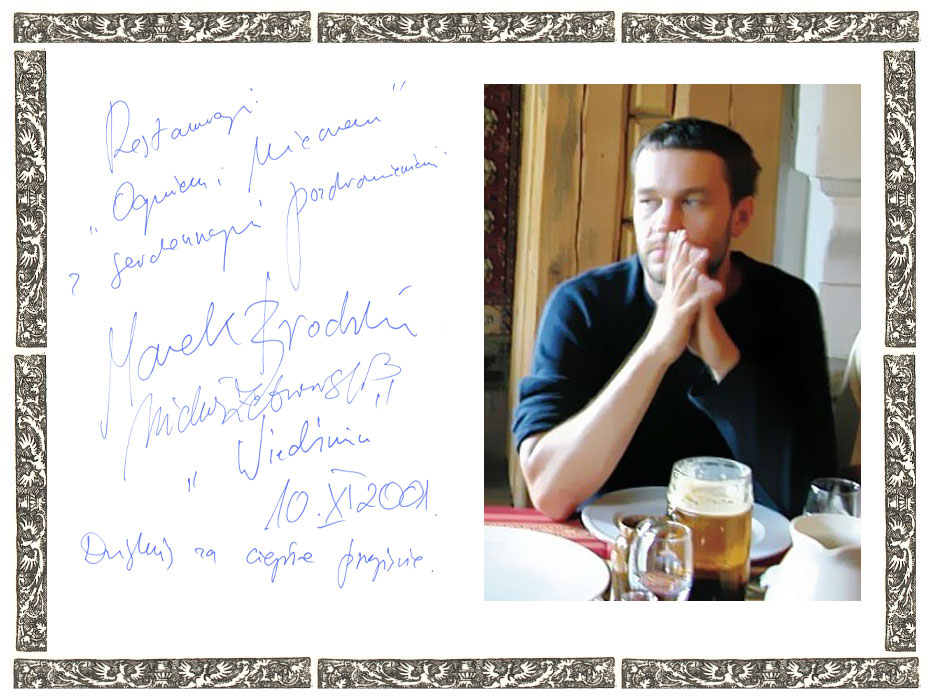 Restauracji
"Ogniem i Mieczem"
z serdecznymi pozdrowieniami
Marek Brodzki
Michał Żebrowski
"Wiedźmin"
10.XI 2001.
Dziękuję za ciepłe przyjęcie.